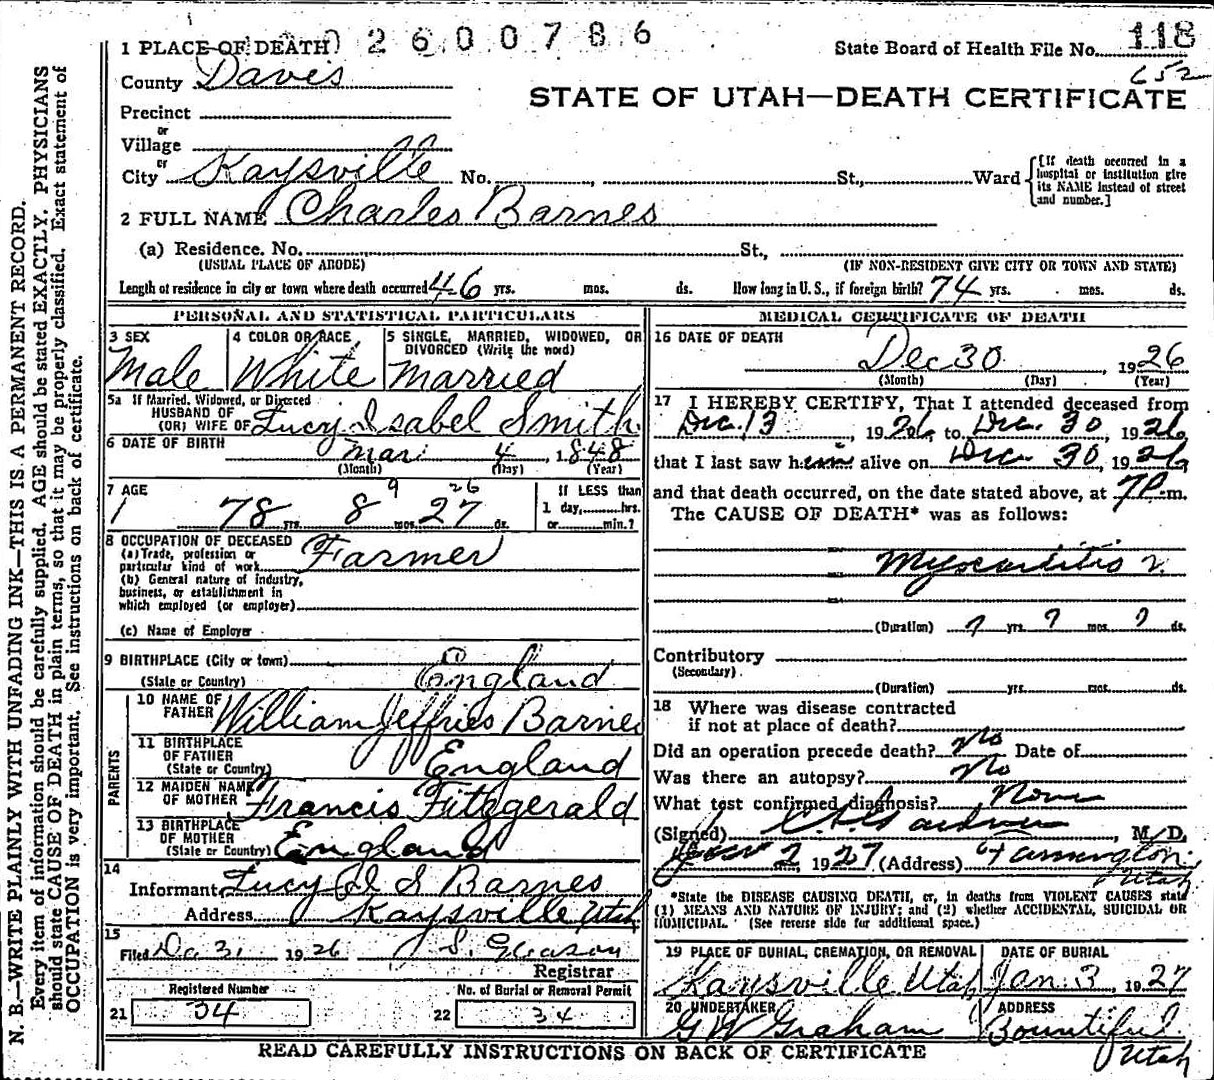 N. B.—WRITE PLAINLY WITH UNFADING INK—THIS IS A PERMANENT RECORD.
Every item of information should be carefully supplied. AGE should be stated EXACTLY. PHYSICIANS
should state CAUSE OF DEATH in plain terms, so that it may be properly classified. Exact statement of
OCCUPATION is very important. See instructions on back of certificate.
2600786
1 PLACE OF DEATH
State Board of Health File No. 118
652
County Davis
STATE OF UTAH—DEATH CERTIFICATE
Precinct
or
Village
or
City Kaysville No. , St., Ward
[If death occurred in a
hospital or institution give
its NAME instead of street
and number.]
2 FULL NAME Charles Barnes
(a) Residence. No. St.,
(USUAL PLACE OF ABODE) (IF NON-RESIDENT GIVE CITY OR TOWN AND STATE)
Length of residence in city or town where death occurred 46 yrs. mos. ds. How long in U. S., if foreign birth? 74 yrs. mos. ds.
PERSONAL AND STATISTICAL PARTICULARS
3 SEX
Male
4 COLOR OR RACE
White
5 SINGLE, MARRIED, WIDOWED, OR
DIVORCED (Write the word)
Married
5a If Married, Widowed, or Divorced
HUSBAND OF
(OR) WIFE OF Lucy Isabel Smith
6 DATE OF BIRTH
Mar 4, 1848
(Month) (Day) (Year)
7 AGE
9 26
78 yrs. 8 mos. 27 ds.
If LESS than
1 day, hrs.
or min.?
8 OCCUPATION OF DECEASED
(a) Trade, profession or
particular kind of work Farmer
(b) General nature of industry,
business, or establishment in
which employed (or employer)
(c) Name of Employer
9 BIRTHPLACE (City or town)
(State or Country) England
PARENTS
10 NAME OF
FATHER William Jeffries Barnes
11 BIRTHPLACE
OF FATHER
(State or Country) England
12 MAIDEN NAME
OF MOTHER Francis Fitzgerald
13 BIRTHPLACE
OF MOTHER
(State or Country) England
14
Informant Lucy I S Barnes
Address Kaysville Utah
15
Filed Dec 31 1926 J. S. Gleason
Registrar
Registered Number
21 34
No. of Burial or Removal Permit
22 34
MEDICAL CERTIFICATE OF DEATH
16 DATE OF DEATH
Dec 30, 1926
(Month) (Day) (Year)
17 I HEREBY CERTIFY, That I attended deceased from
Dec. 13, 1926, to Dec. 30, 1926
that I last saw him alive on Dec. 30, 1926
and that death occurred, on the date stated above, at 7 P. m.
The CAUSE OF DEATH* was as follows:
Myocarditis
(Duration) ? yrs. ? mos. ? ds.
Contributory
(Secondary)
(Duration) yrs. mos. ds.
18 Where was disease contracted
if not at place of death?
Did an operation precede death? No Date of
Was there an autopsy? No
What test confirmed diagnosis? None
(Signed) Gardner, M. D.
Jan 2 1927 (Address) Farmington
Utah
*State the DISEASE CAUSING DEATH, or, in deaths from VIOLENT CAUSES state
(1) MEANS AND NATURE OF INJURY; and (2) whether ACCIDENTAL, SUICIDAL OR
HOMICIDAL. (See reverse side for additional space.)
19 PLACE OF BURIAL, CREMATION, OR REMOVAL
Kaysville Utah
DATE OF BURIAL
Jan. 3, 1927
20 UNDERTAKER
G W Graham
ADDRESS
Bountiful
Utah
READ CAREFULLY INSTRUCTIONS ON BACK OF CERTIFICATE